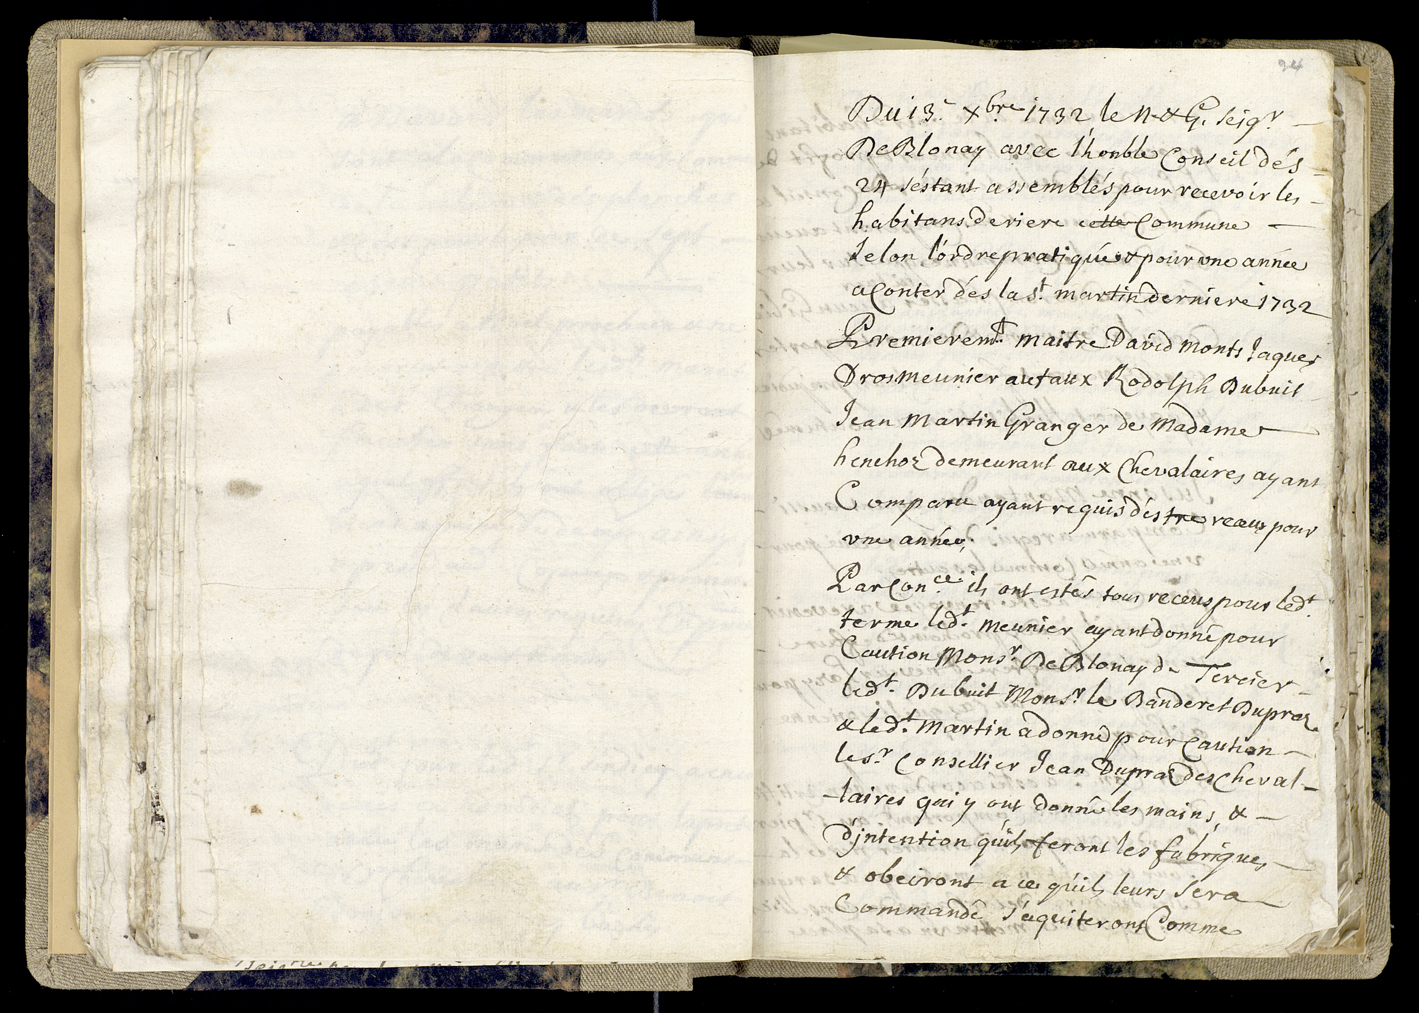 24
Du 13.e Xbre 1732 le N & G. seigr
De Blonay avec l'honble Conseil dés
24 s'éstant assemblés pour recevoir les
habitans deriere cette Commune
selon l'ordre pratiqué & pour une année
a Conter dés la st. martin derniere 1732
Premieremt. maitre David monts Jaques
Dros meunier au faux Rodolph Dubuit
Jean Martin Granger de Madame
henchoz demeurant aux Chevalaires ayant
Comparu ayant requis déstre receus pour
une année,
Par Conce. ils ont estés tous receus pour ledt
terme ledt. meunier ayant donné pour
Caution Monsr. De Blonay de Tercier
ledt. Dubuit Monsr le Banderet Dupraz
& ledt. Martin a donné pour Caution
le sr. Consellier Jean Dupraz des Cheval-
-laires qui y ont donné les mains, &
D'intention qu'ils feront les fabriques,
& obeiront a ce qu'ils leurs sera
Commandé s'aquiteront Comme